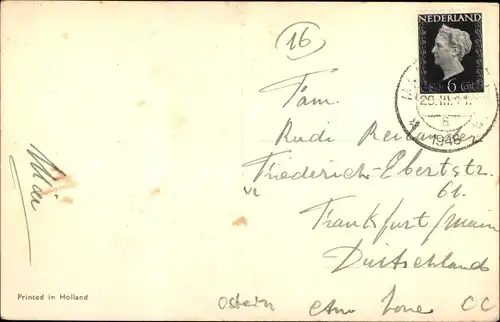 16
NEDERLAND
6 Cent
1948
Fam.
Rudi
Friederich-Ebertstr.
61.
Frankfurt/Main
Duitschland
Printed in Holland
Ostern
CC